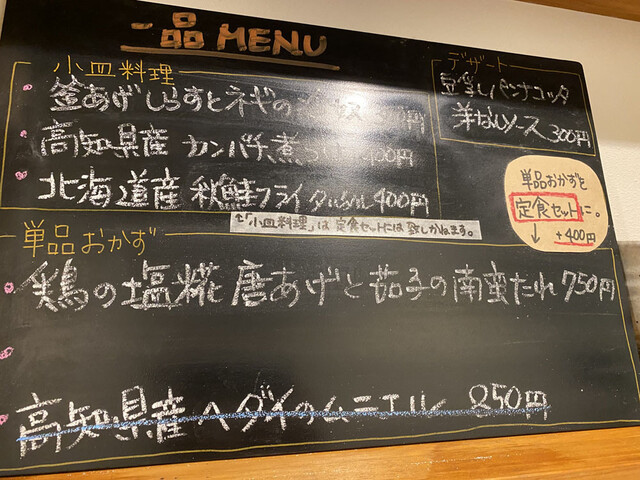 一品 MENU
小皿料理
釜あげしらすとネギの
高知県産 カンパチ煮 400円
北海道産 秋鮭フライタルタル 400円
↑「小皿料理」は定食セットには致しかねます。
デザート
豆乳パンナコッタ
洋なしソース 300円
単品おかずを
定食セットに。
↓ +400円
単品おかず
鶏の塩糀唐あげと茄子の南蛮たれ 750円
高知県産 ヘダイのムニエル 850円